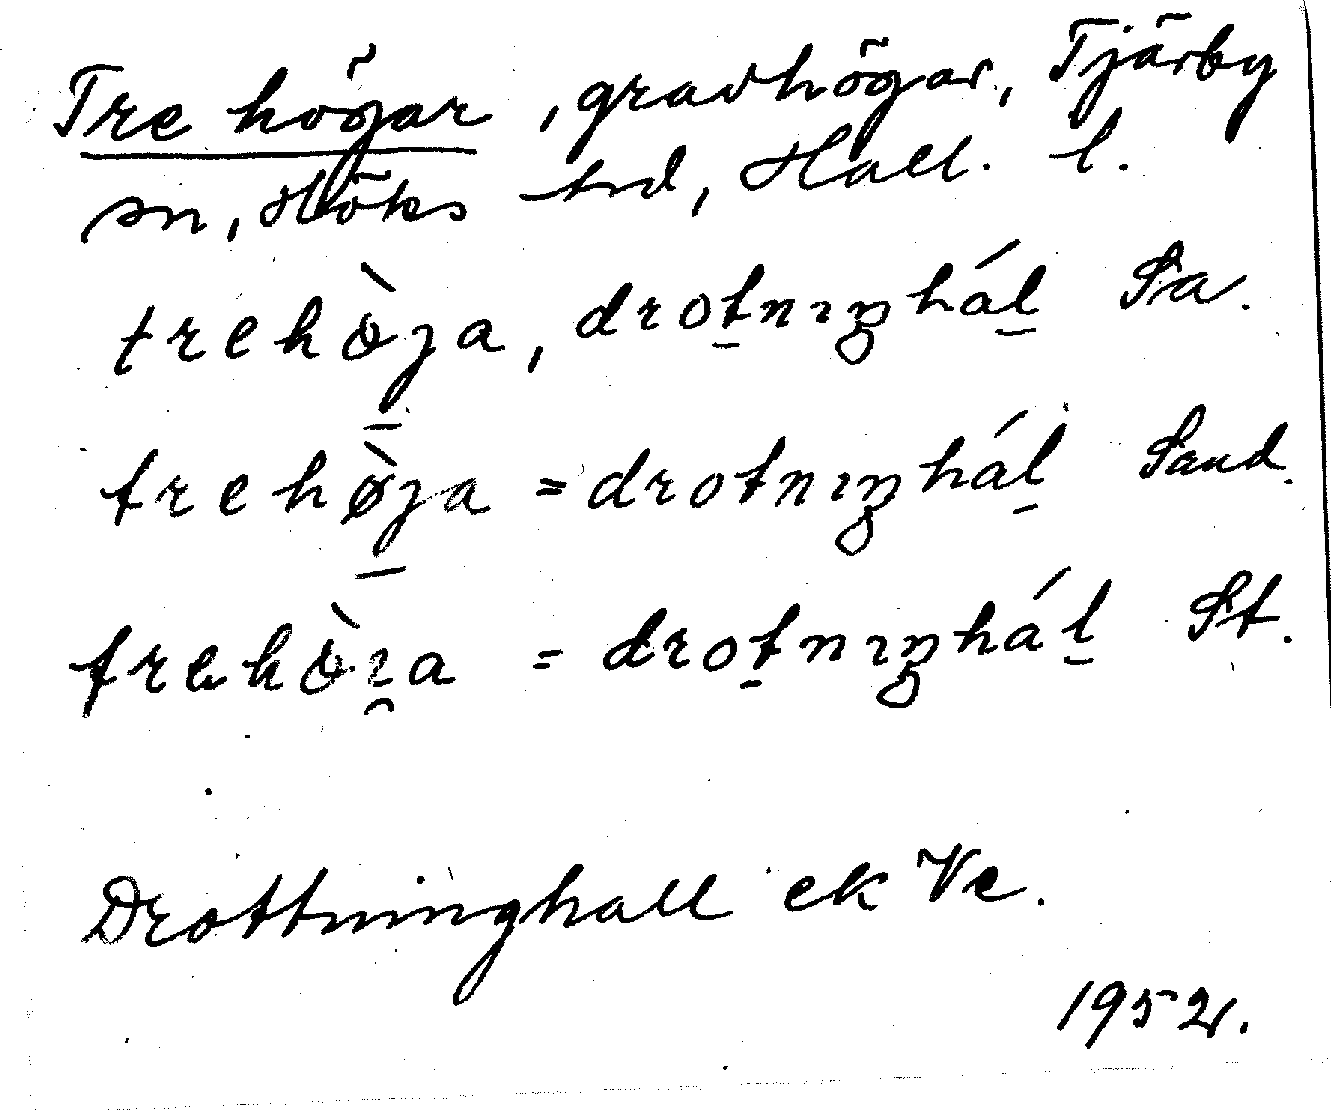 Tre högar, gravhögar, Tjärby
sn, Höks hd, Hall. l.
trehö̀ja, drotnıŋhál Sa.
trehø̀ja = drotnıŋhál Sand.
trehö̀ı̯a = drotnıŋhál St.
Drottninghall ek Ve.
1952.